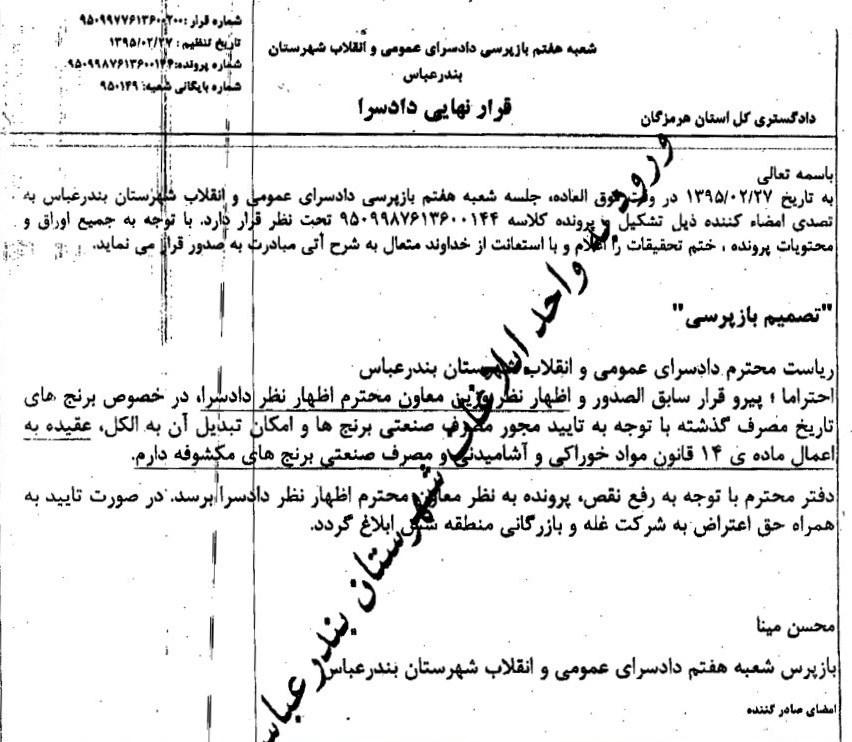 شماره قرار :۹۵۰۹۹۷۷۶۱۳۶۰۰۲۰۰
تاریخ تنظیم : ۱۳۹۵/۰۲/۲۷
شماره پرونده:۹۵۰۹۹۸۷۶۱۳۶۰۰۱۴۴
شماره بایگانی شعبه: ۹۵۰۱۴۹
شعبه هفتم بازپرسی دادسرای عمومی و انقلاب شهرستان
بندرعباس
قرار نهایی دادسرا
دادگستری کل استان هرمزگان
باسمه تعالی
به تاریخ ۱۳۹۵/۰۲/۲۷ در وقت فوق العاده، جلسه شعبه هفتم بازپرسی دادسرای عمومی و انقلاب شهرستان بندرعباس به
تصدی امضاء کننده ذیل تشکیل و پرونده کلاسه ۹۵۰۹۹۸۷۶۱۳۶۰۰۱۴۴ تحت نظر قرار دارد. با توجه به جمیع اوراق و
محتویات پرونده ، ختم تحقیقات را اعلام و با استعانت از خداوند متعال به شرح آتی مبادرت به صدور قرار می نماید.
"تصمیم بازپرسی"
ریاست محترم دادسرای عمومی و انقلاب شهرستان بندرعباس
احتراما ؛ پیرو قرار سابق الصدور و اظهار نظر وزین معاون محترم اظهار نظر دادسرا، در خصوص برنج های
تاریخ مصرف گذشته با توجه به تایید مجور مصرف صنعتی برنج ها و امکان تبدیل آن به الکل، عقیده به
اعمال ماده ی ۱۴ قانون مواد خوراکی و آشامیدنی و مصرف صنعتی برنج های مکشوفه دارم.
دفتر محترم با توجه به رفع نقص، پرونده به نظر معاون محترم اظهار نظر دادسرا برسد. در صورت تایید به
همراه حق اعتراض به شرکت غله و بازرگانی منطقه شش ابلاغ گردد.
محسن مینا
بازپرس شعبه هفتم دادسرای عمومی و انقلاب شهرستان بندرعباس
امضای صادر گننده
ورود به واحد شهرستان بندرعباس